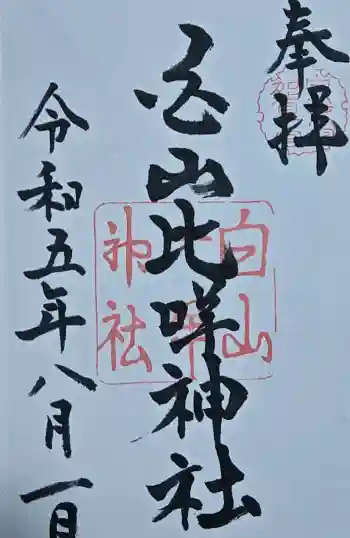 奉拝
白山比咩神社
令和五年八月一日
白山
比咩
神社